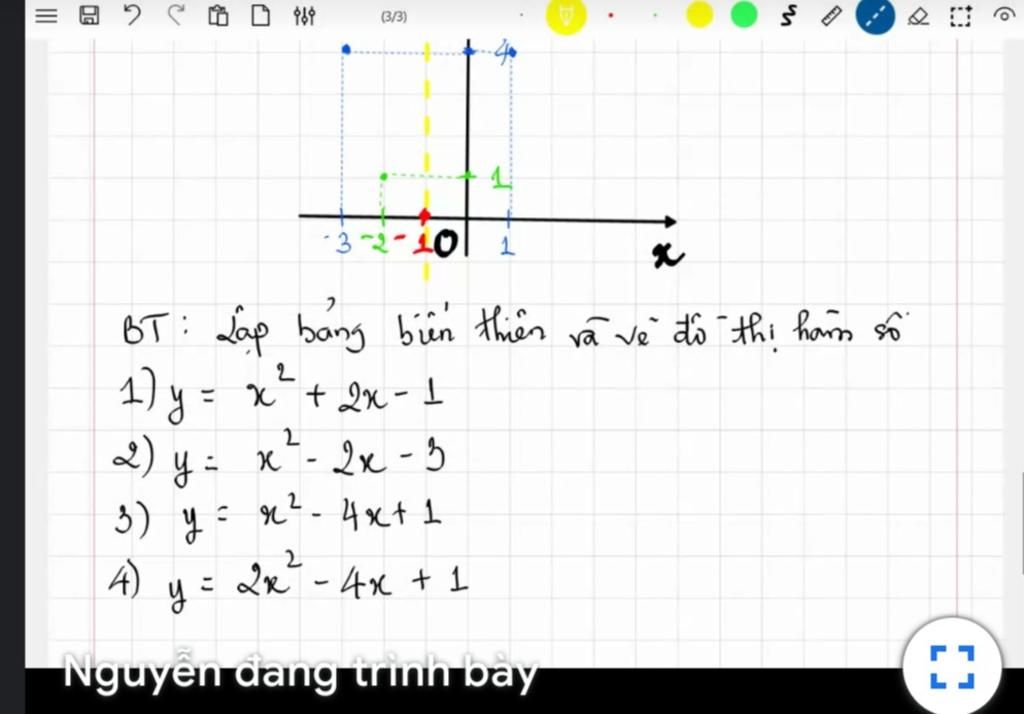 (3/3)
4
1
-3 -2 -1 O 1
x
BT: Lập bảng biến thiên và vẽ đồ thị hàm số
1) y = x² + 2x - 1
2) y = x² - 2x - 3
3) y = x² - 4x + 1
4) y = 2x² - 4x + 1
Nguyễn đang trình bày